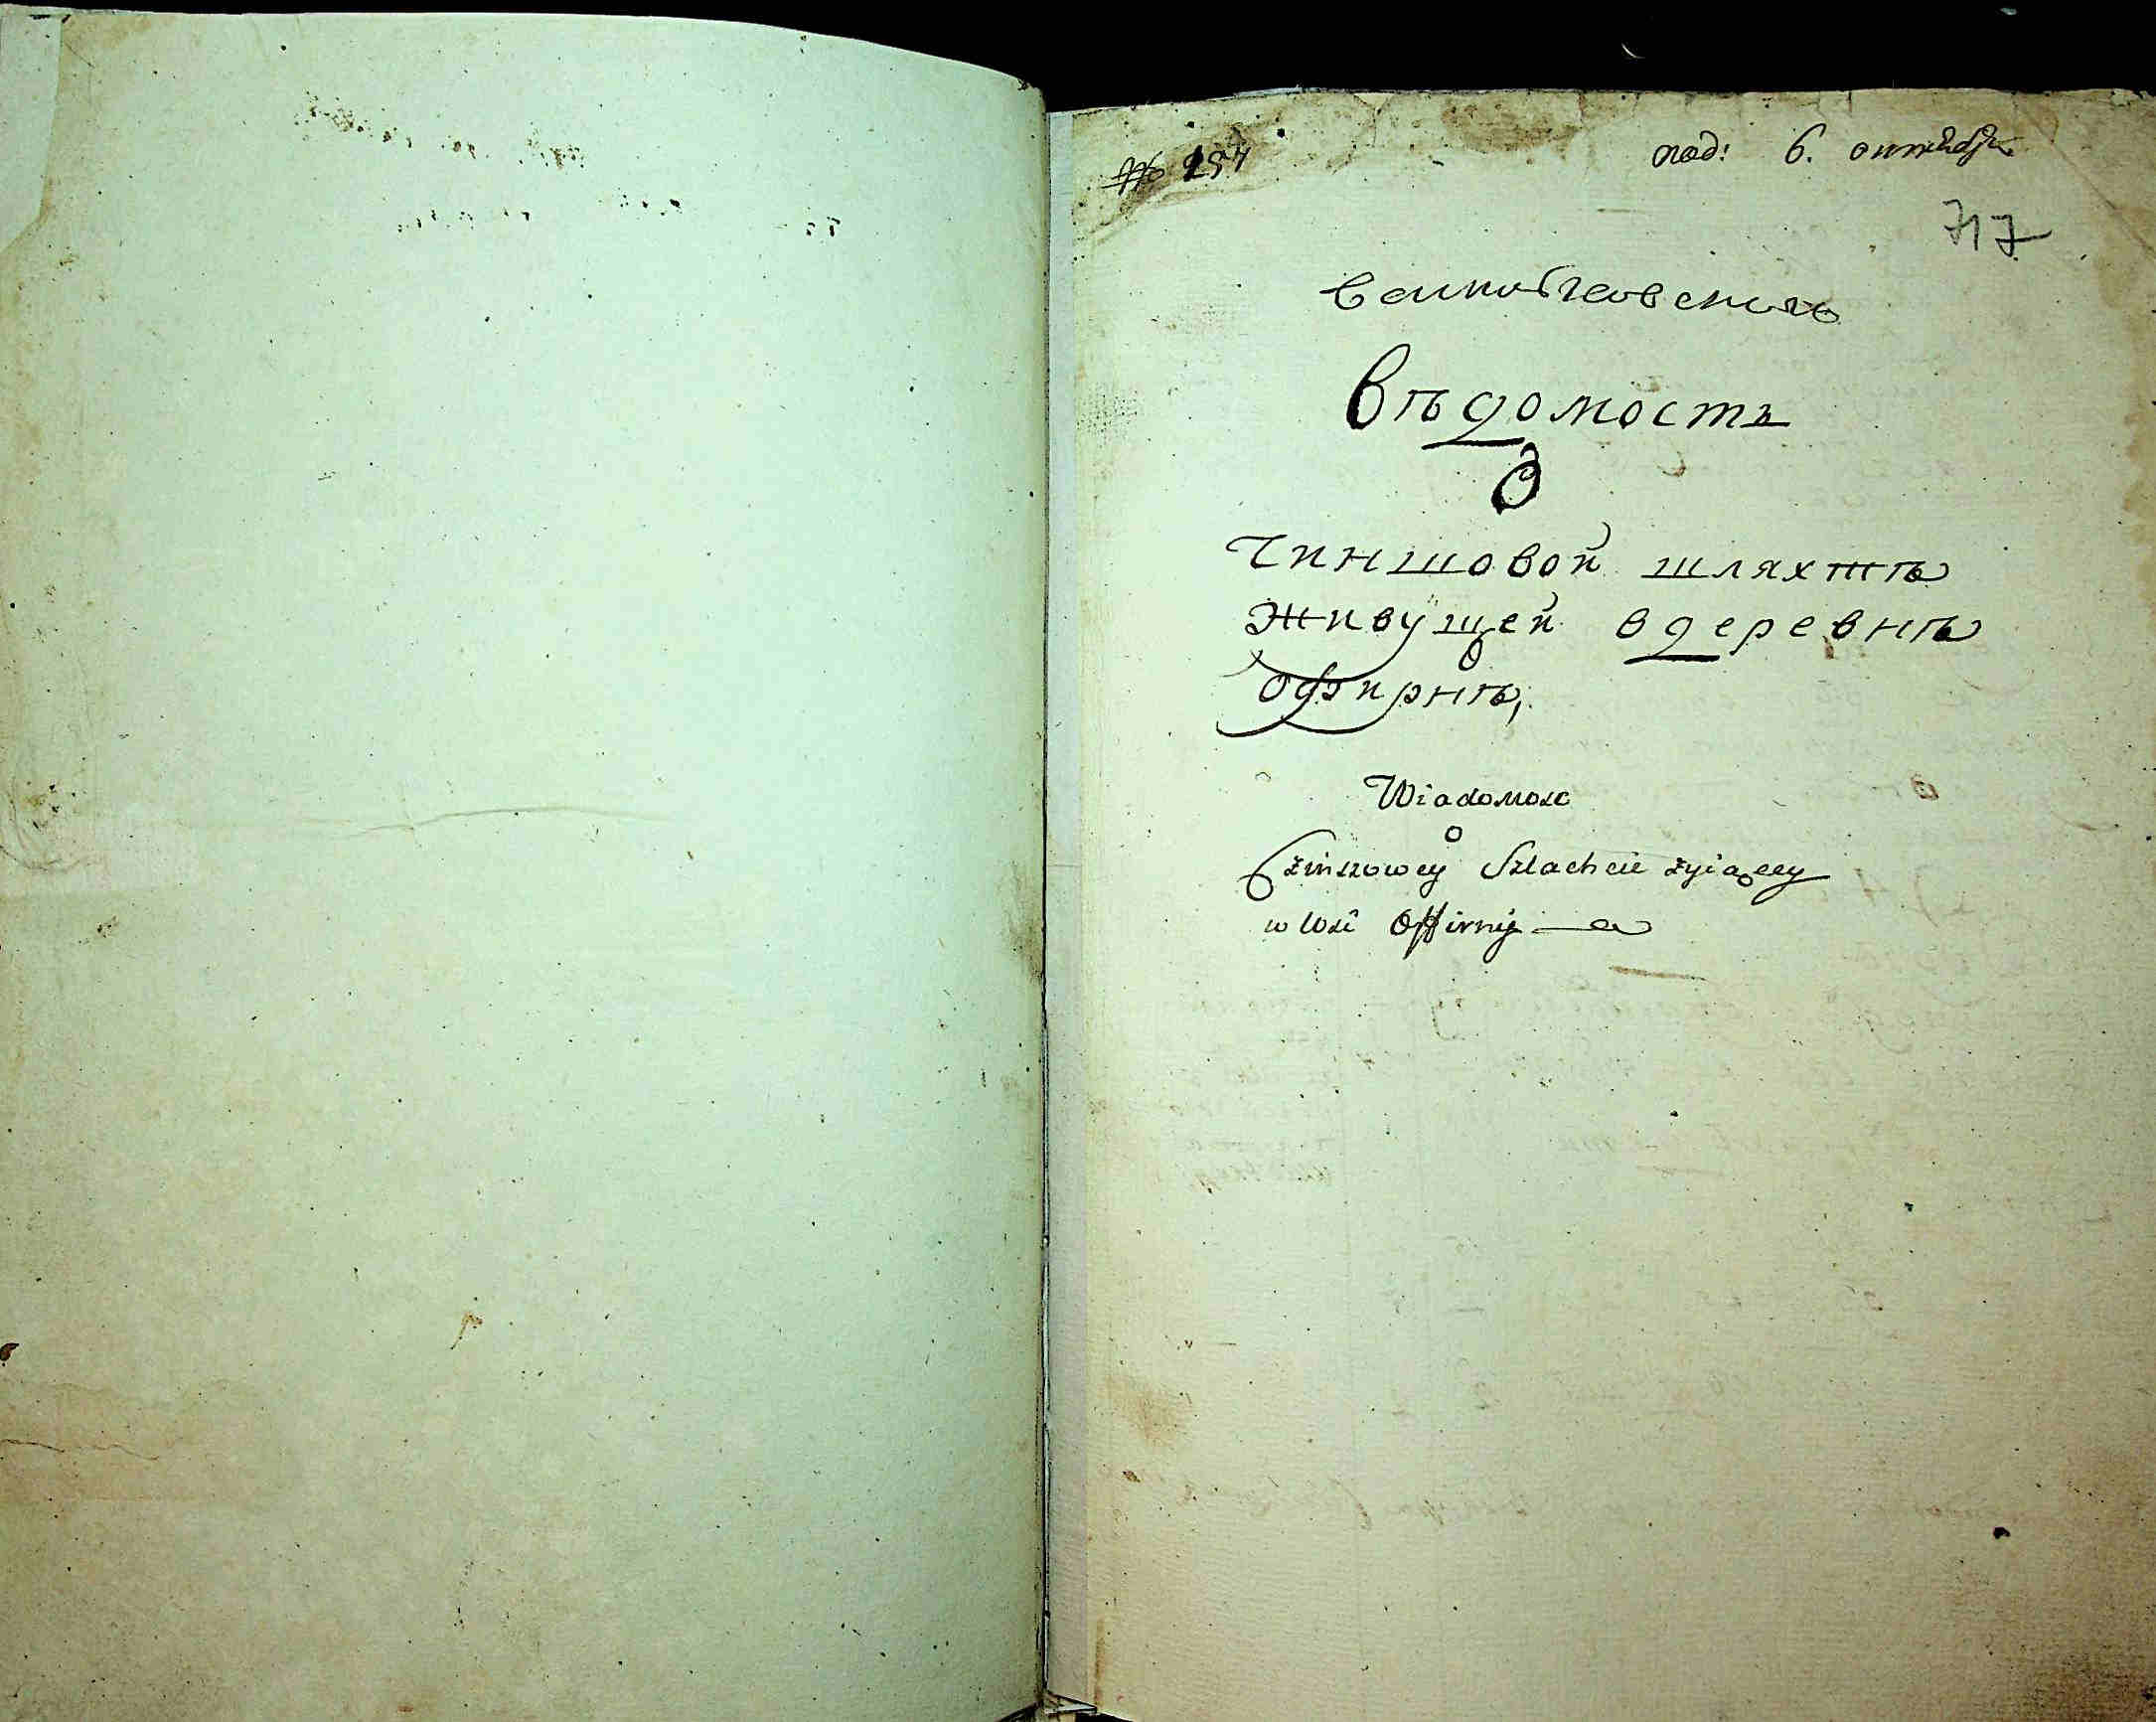 № 257
под: 6. октября
717
Вѣдомость
О
чиншовой шляхтѣ
живущей вдеревнѣ
Офирнѣ,
Wiadomosc
o
Czinszowey Szlachcie żyiącey
w Wsi Offirnÿ